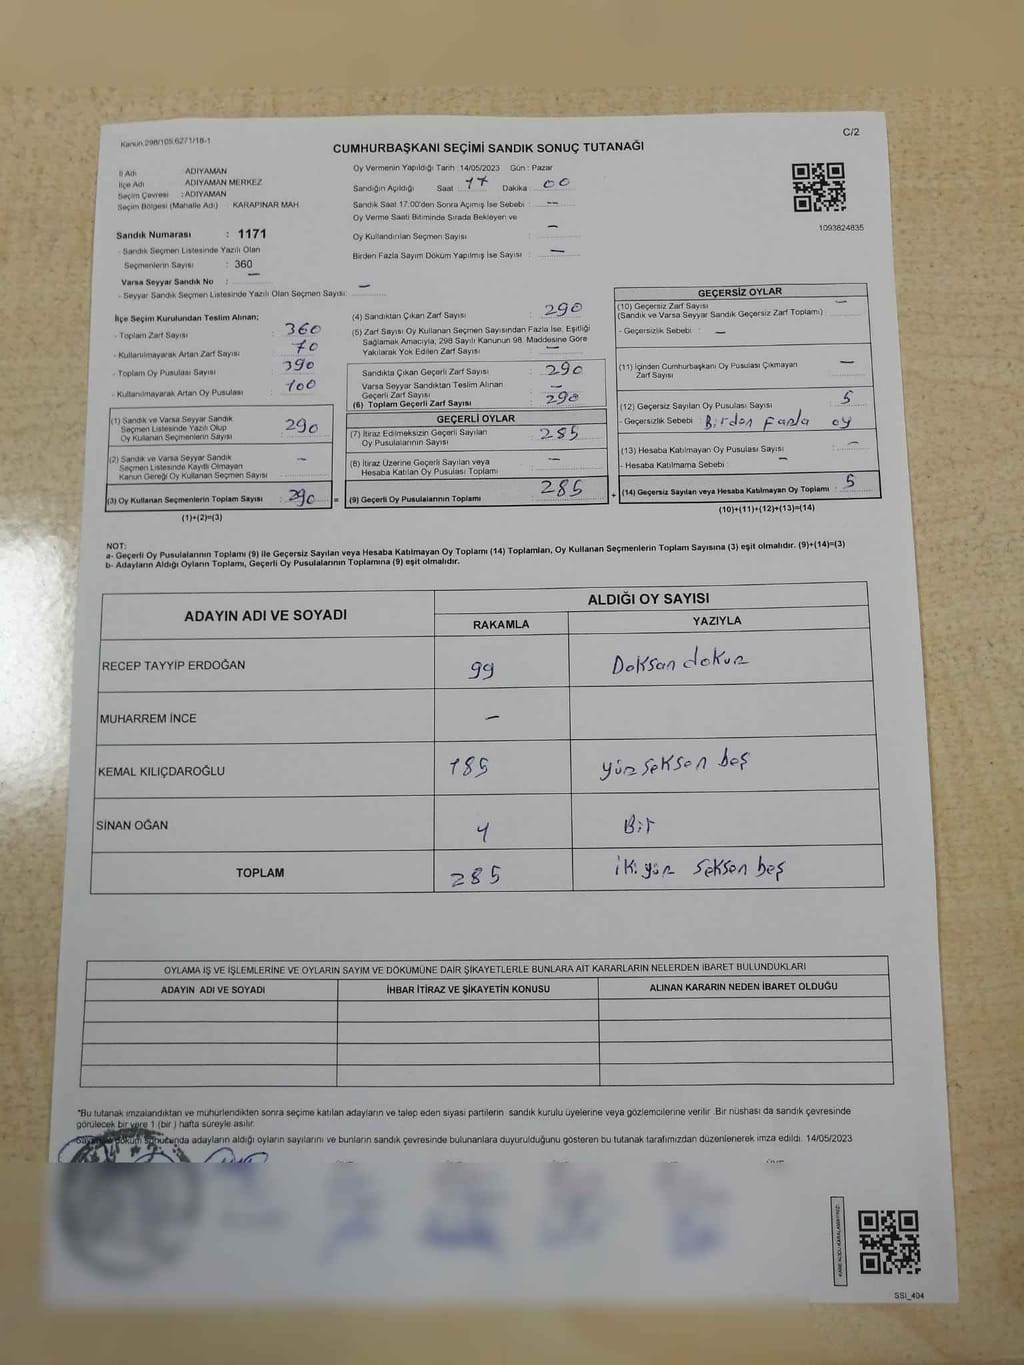 Kanun.298/105,6271/18-1
C/2
CUMHURBAŞKANI SEÇİMİ SANDIK SONUÇ TUTANAĞI
İl Adı : ADIYAMAN
İlçe Adı : ADIYAMAN MERKEZ
Seçim Çevresi : ADIYAMAN
Seçim Bölgesi (Mahalle Adı) : KARAPINAR MAH.
Sandık Numarası : 1171
- Sandık Seçmen Listesinde Yazılı Olan
Seçmenlerin Sayısı : 360
Varsa Seyyar Sandık No : —
- Seyyar Sandık Seçmen Listesinde Yazılı Olan Seçmen Sayısı: —
Oy Vermenin Yapıldığı Tarih :14/05/2023 Gün : Pazar
Sandığın Açıldığı Saat 17 Dakika 00
Sandık Saat 17:00'den Sonra Açımış İse Sebebi : —
Oy Verme Saati Bitiminde Sırada Bekleyen ve
Oy Kullandırılan Seçmen Sayısı : —
Birden Fazla Sayım Döküm Yapılmış İse Sayısı : —
1093824835
İlçe Seçim Kurulundan Teslim Alınan;
- Toplam Zarf Sayısı : 360
- Kullanılmayarak Artan Zarf Sayısı : 70
- Toplam Oy Pusulası Sayısı : 390
- Kullanılmayarak Artan Oy Pusulası : 100
(1) Sandık ve Varsa Seyyar Sandık
Seçmen Listesinde Yazılı Olup
Oy Kullanan Seçmenlerin Sayısı : 290
(2) Sandık ve Varsa Seyyar Sandık
Seçmen Listesinde Kayıtlı Olmayan
Kanun Gereği Oy Kullanan Seçmen Sayısı : —
(3) Oy Kullanan Seçmenlerin Toplam Sayısı : 290 =
(1)+(2)=(3)
(4) Sandıktan Çıkan Zarf Sayısı : 290
(5) Zarf Sayısı Oy Kullanan Seçmen Sayısından Fazla İse, Eşitliği
Sağlamak Amacıyla, 298 Sayılı Kanunun 98. Maddesine Göre
Yakılarak Yok Edilen Zarf Sayısı : —
Sandıkta Çıkan Geçerli Zarf Sayısı : 290
Varsa Seyyar Sandıktan Teslim Alınan
Geçerli Zarf Sayısı : —
(6) Toplam Geçerli Zarf Sayısı : 290
GEÇERLİ OYLAR
(7) İtiraz Edilmeksizin Geçerli Sayılan
Oy Pusulalarının Sayısı : 285
(8) İtiraz Üzerine Geçerli Sayılan veya
Hesaba Katılan Oy Pusulası Toplamı : —
(9) Geçerli Oy Pusulalarının Toplamı : 285 +
GEÇERSİZ OYLAR
(10) Geçersiz Zarf Sayısı : —
(Sandık ve Varsa Seyyar Sandık Geçersiz Zarf Toplamı)
- Geçersizlik Sebebi : —
(11) İçinden Cumhurbaşkanı Oy Pusulası Çıkmayan
Zarf Sayısı : —
(12) Geçersiz Sayılan Oy Pusulası Sayısı : 5
- Geçersizlik Sebebi : Birden fazla oy
(13) Hesaba Katılmayan Oy Pusulası Sayısı : —
- Hesaba Katılmama Sebebi : —
(14) Geçersiz Sayılan veya Hesaba Katılmayan Oy Toplamı : 5
(10)+(11)+(12)+(13)=(14)
NOT:
a- Geçerli Oy Pusulalarının Toplamı (9) ile Geçersiz Sayılan veya Hesaba Katılmayan Oy Toplamı (14) Toplamları, Oy Kullanan Seçmenlerin Toplam Sayısına (3) eşit olmalıdır. (9)+(14)=(3)
b- Adayların Aldığı Oyların Toplamı, Geçerli Oy Pusulalarının Toplamına (9) eşit olmalıdır.
ADAYIN ADI VE SOYADI
ALDIĞI OY SAYISI
RAKAMLA YAZIYLA
RECEP TAYYİP ERDOĞAN 99 Doksan dokuz
MUHARREM İNCE —
KEMAL KILIÇDAROĞLU 185 yüz seksen beş
SİNAN OĞAN 1 Bir
TOPLAM 285 iki yüz seksen beş
OYLAMA İŞ VE İŞLEMLERİNE VE OYLARIN SAYIM VE DÖKÜMÜNE DAİR ŞİKAYETLERLE BUNLARA AİT KARARLARIN NELERDEN İBARET BULUNDUKLARI
ADAYIN ADI VE SOYADI İHBAR İTİRAZ VE ŞİKAYETİN KONUSU ALINAN KARARIN NEDEN İBARET OLDUĞU
*Bu tutanak imzalandıktan ve mühürlendikten sonra seçime katılan adayların ve talep eden siyasi partilerin sandık kurulu üyelerine veya gözlemcilerine verilir. Bir nüshası da sandık çevresinde
görülecek bir yere 1 (bir ) hafta süreyle asılır.
döküm sonucunda adayların aldığı oyların sayılarını ve bunların sandık çevresinde bulunanlara duyurulduğunu gösteren bu tutanak tarafımızdan düzenlenerek imza edildi. 14/05/2023
SSI_404